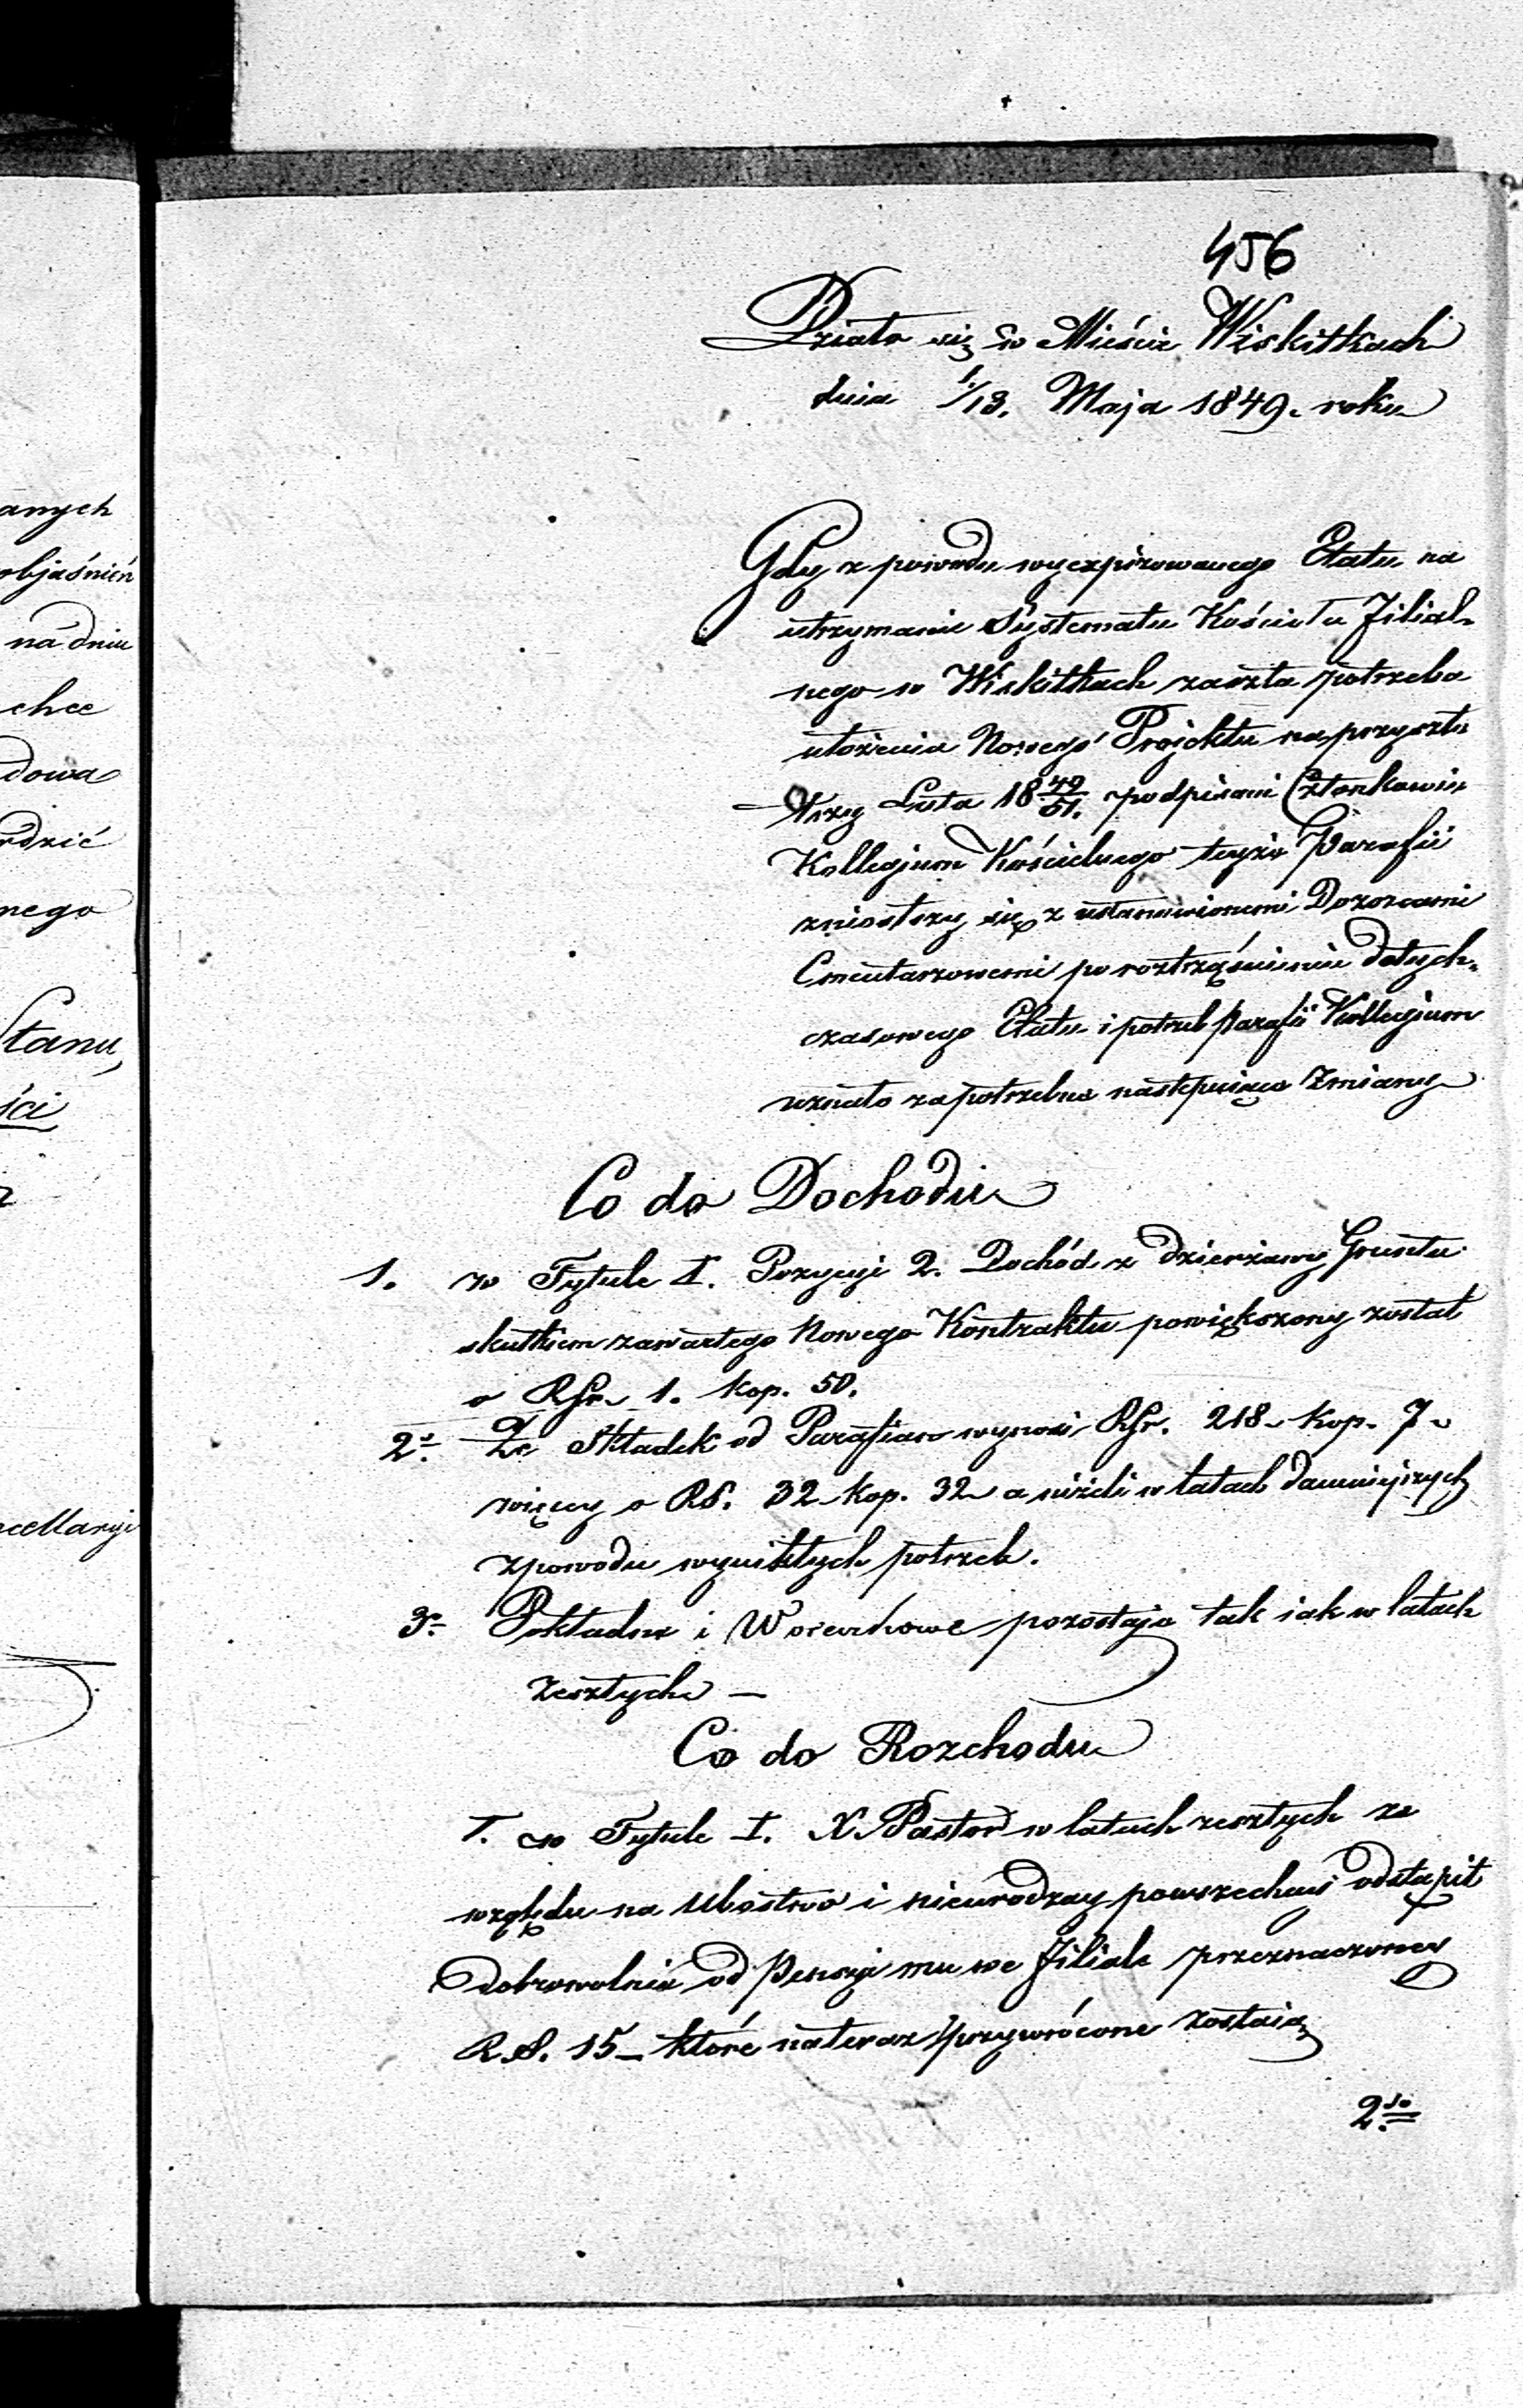 456
Działo się w Mieście Wiskitkach
dnia 1/13. Maja 1849. roku
anych
objaśnień
na dniu
chce
dowa
rdzić
nego
Stanu,
ści
Gdy z powodu wyexpirowanego Etatu na
utrzymanie Systematu Kościoła Filial-
nego w Wiskitkach zaszła potrzeba
ułożenia Nowego Projektu na przyszłe
trzy Lata 18 49/51. podpisani Członkowie
Kollegium Kościelnego teyże Parafii
zniosłszy się z ustanowionemi Dozorcami
Cmentarzowemi po roztrząśnieniu dotych-
czasowego Etatu i potrzeb Parafii Kollegium
uznało za potrzebne następuiące Zmiany
Co do Dochodu
1. w Tytule I. Pozycyi 2. Dochód z Dzierżawy Gruntu
skutkiem zawartego Nowego Kontraktu powiększony został
o RSr. 1. kop. 50.
2° Ze Składek od Parafian wynosi RSr. 218 kop. 7
więcey o RS. 32 kop. 32 a niżeli w latach dawniejszych
z powodu wynikłych potrzeb.
3° Pokładne i Woreczkowe pozostają tak iak w latach
Zeszłych —
Co do Rozchodu
I. w Tytule I. X. Pastor w latach zeszłych ze
względu na Ubóstwo i nieurodzay powszechny odstąpił
Dobrowolnie od Pensyi mu we Filiale przeznaczoney
R.S. 15 – które na teraz przywrócone zostaią
2do